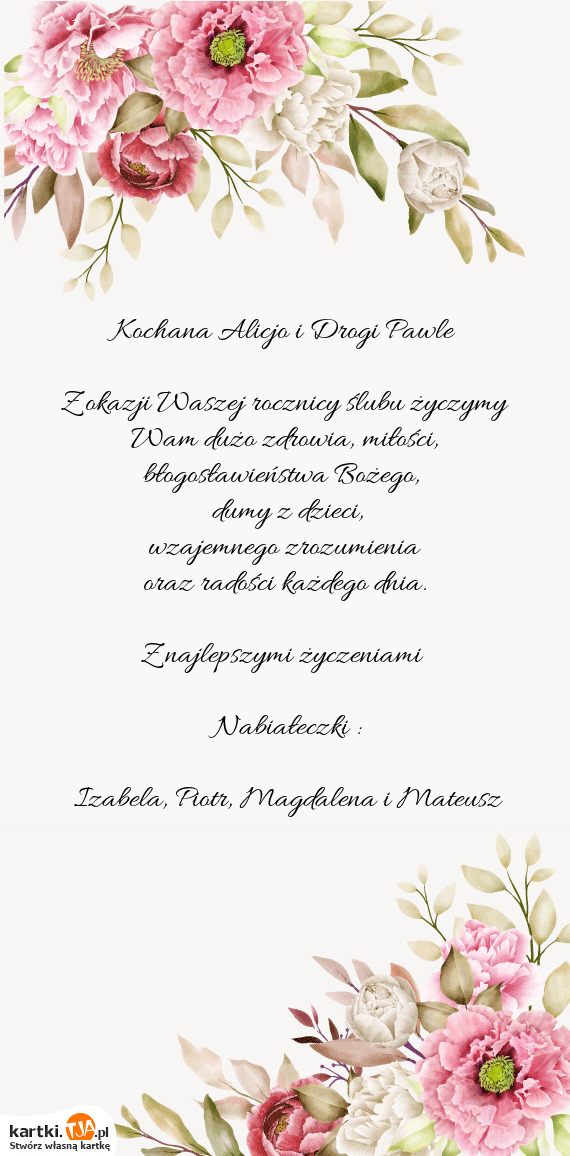 Kochana Alicjo i Drogi Pawle
Z okazji Waszej rocznicy ślubu życzymy
Wam dużo zdrowia, miłości,
błogosławieństwa Bożego,
dumy z dzieci,
wzajemnego zrozumienia
oraz radości każdego dnia.
Z najlepszymi życzeniami
Nabiałeczki :
Izabela, Piotr, Magdalena i Mateusz
kartki.TJA.pl
Stwórz własną kartkę